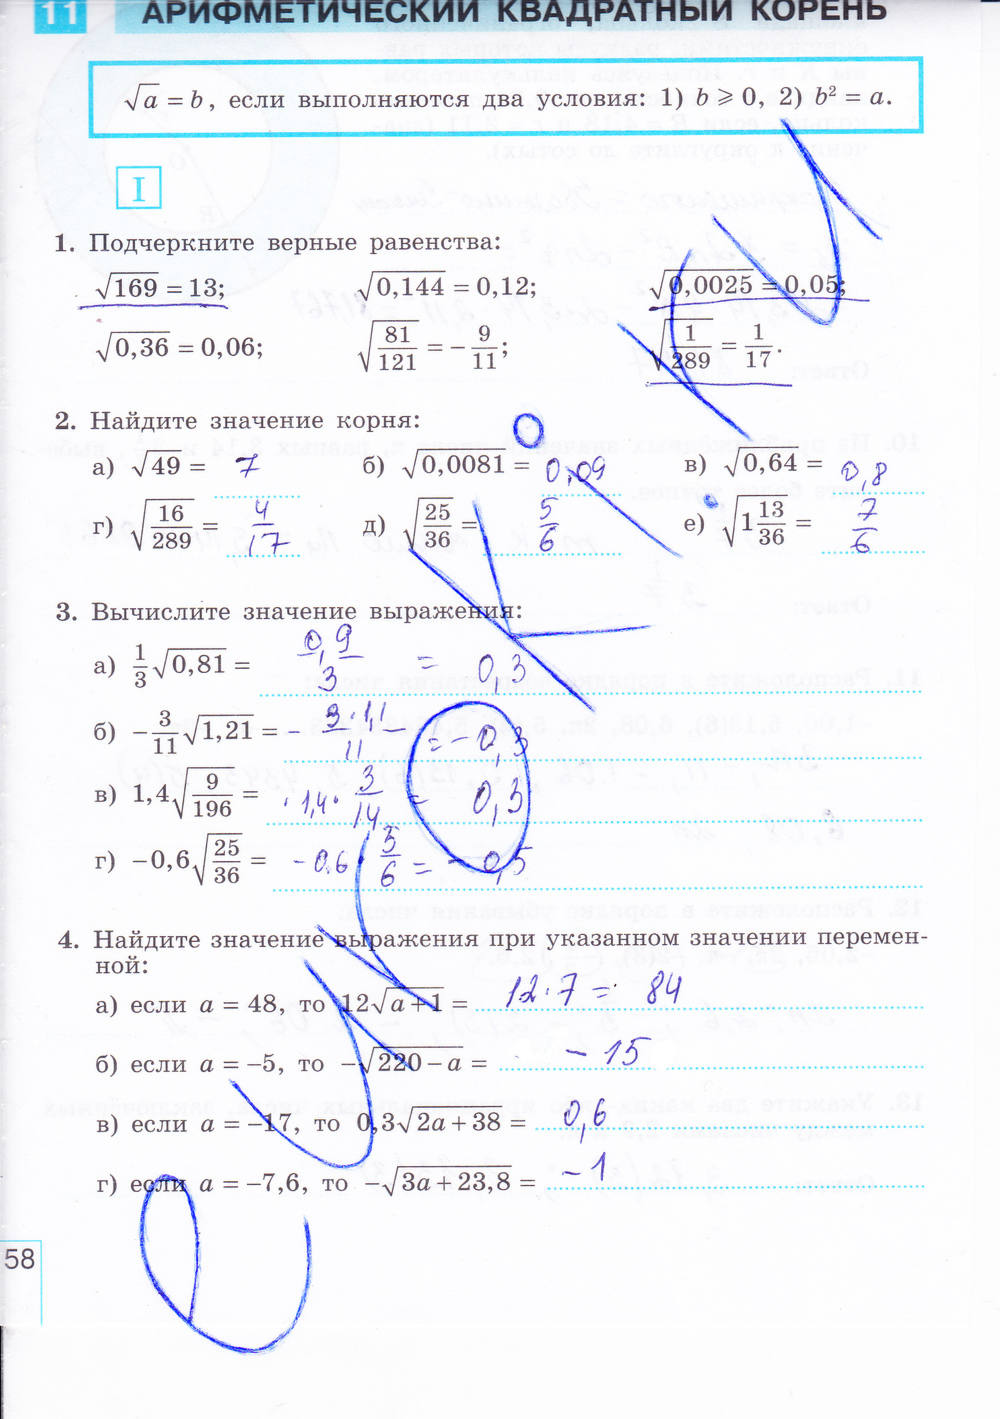 11 АРИФМЕТИЧЕСКИЙ КВАДРАТНЫЙ КОРЕНЬ
√a = b, если выполняются два условия: 1) b ⩾ 0, 2) b² = a.
I
1. Подчеркните верные равенства:
√169 = 13; √0,144 = 0,12; √0,0025 = 0,05;
√0,36 = 0,06; √(81/121) = −9/11; √(1/289) = 1/17.
2. Найдите значение корня:
а) √49 = 7 б) √0,0081 = 0,09 в) √0,64 = 0,8
г) √(16/289) = 4/17 д) √(25/36) = 5/6 е) √(1 13/36) = 7/6
3. Вычислите значение выражения:
а) 1/3 √0,81 = 0,9/3 = 0,3
б) −3/11 √1,21 = − 3·1,1/11 = −0,3
в) 1,4√(9/196) = 1,4 · 3/14 = 0,3
г) −0,6√(25/36) = −0,6 · 5/6 = −0,5
4. Найдите значение выражения при указанном значении перемен-
ной:
а) если a = 48, то 12√(a + 1) = 12·7 = 84
б) если a = −5, то −√(220 − a) = −15
в) если a = −17, то 0,3√(2a + 38) = 0,6
г) если a = −7,6, то −√(3a + 23,8) = −1
58